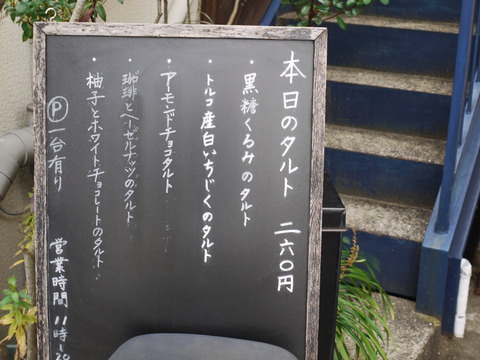 本日のタルト 二六〇円
・黒糖くるみのタルト
・トルコ産白いちじくのタルト
・アーモンドチョコタルト
・珈琲とヘーゼルナッツのタルト
・柚子とホワイトチョコレートのタルト
Ⓟ一台有り
営業時間 11時〜20